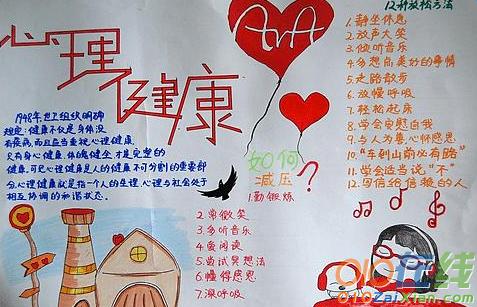 心理健康
1948年世卫组织明确
规定：健康不仅是身体没
有疾病，而且应当重视心理健康，
只有身心健康、体魄健全，才是完整的
健康。可见心理健康是人的健康不可分割的重要部
分。心理健康就是指一个人的生理、心理与社会处于
相互协调的和谐状态。
AnA
如何
减压
?
1.勤锻炼
2.常微笑
3.多听音乐
4.爱阅读
5.尝试冥想法
6.懂得感恩
7.深呼吸
12种放松方法
1.静坐休息
2.放声大笑
3.倾听音乐
4.多想
美好的事情
5.走路散步
6.放慢呼吸
7.轻松起床
8.学会安慰自我
9.与人为善,心怀感恩
10."车到山前必有路"
11.学会适当说"不"
12.写信给信赖的人
010在线
010ZaiXian.com